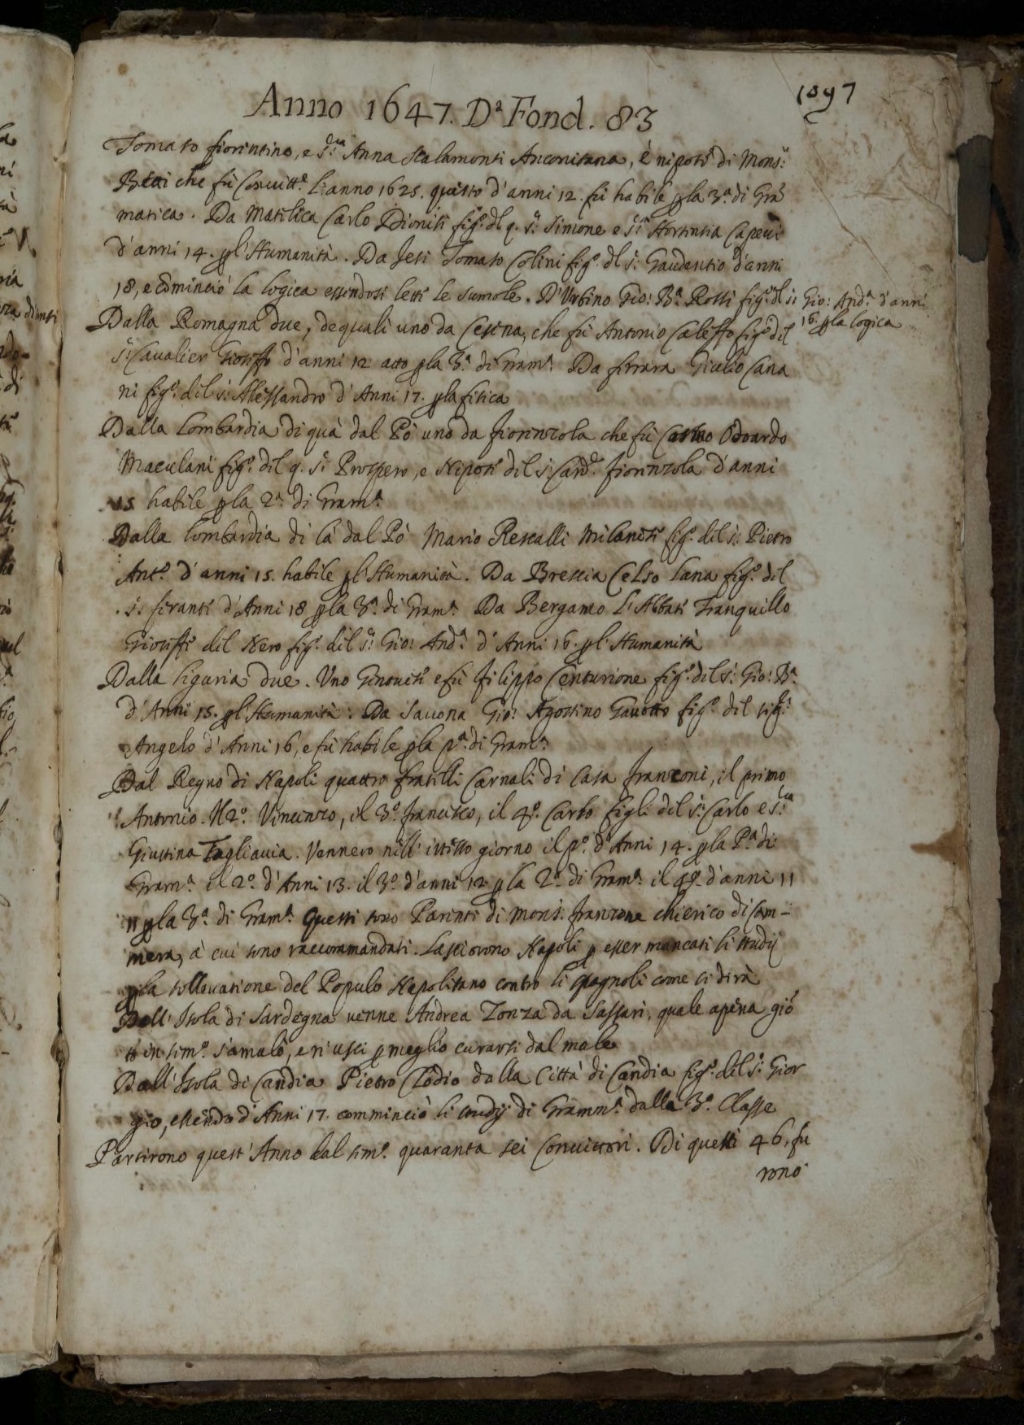 1097
Anno 1647. Dª Fond. 83
Tomaso fiorentino, e S.ra Anna Scalamonti Anconitana, è nipote di Mons.r
Betti che fù Convitt.e l'anno 1625. questo d'anni 12. fù habile p la 3.ª di Gra
matica. Da Matelica Carlo Dionisi fig.º dl q. S.r Simone e S.ra Hortentia
d'anni 14. p l'Humanità. Da Jesi Tomaso Colini fig.º dl S.r Gaudentio d'anni
18, e cominciò la logica essendosi lette le sumole. D'Urbino Gio: B.ª Rossi fig.º dl S.r Gio: And.ª d'anni
16. p la logica
Dalla Romagna due, de quali uno da Cesena, che fù Antonio Caleffo fig.º del
S.r Cavalier Gioseffo d'anni 12 atto p la 3.ª di Gram.ª Da ferrara Giulio Cana
ni fig.º del S.r Alessandro d'Anni 17. p la fisica
Dalla Lombardia di quà dal Pò uno da fiorenzola che fù Odoardo
Maculani fig.º del q. S.r Prospero, e Nipote del S.r Card.e fiorenzola d'anni
15 habile p la 2.ª di Gram.ª
Dalla Lombardia di là dal Pò Mario Rescalli Milanese fig.º del S.r Pietro
Ant.º d'anni 15. habile p l'Humanità. Da Brescia Celso Lana fig.º del
S.r ferante d'Anni 18 p la 3.ª di Gram.ª Da Bergamo L'Abbate Tranquillo
Gioseffo del Nero fig.º del S.r Gio: And.ª d'Anni 16. p l'Humanità
Dalla liguria due. Uno Genovese e fù filippo Centurione fig.º del S.r Gio: B.ª
d'Anni 15. p l'Humanità: Da Savona Gio: Agostino Gavotto fig.º del sig.r
Angelo d'Anni 16, e fù habile p la p.ª di Gram.ª
Dal Regno di Napoli quattro fratelli Carnali di Casa franconi, il primo
Antonio. Il 2.º Vincenzo, il 3.º francesco, il 4.º Carlo figli del S.r Carlo e S.ra
Giustina Tagliavia. Vennero nell' istesso giorno il p.º d'Anni 14. p la P.ª di
Gram.ª il 2.º d'Anni 13. il 3.º d'anni 12 p la 2.ª di Gram.ª il 4.º d'anni 11
p la 3.ª di Gram.ª Questi sono Parenti di Mons. franzone chierico di cam-
mera, à cui sono raccommandati. Lasciorono Napoli p esser mancati li studij
p la sollevatione del Populo Napolitano contro li spagnoli come si dirà
Dall' Isola di Sardegna venne Andrea Zonza da Sassari, quale apena giõ
to in sem.º s'amalò, e n'uscì p meglio curarsi dal male
Dall' Isola di Candia Pietro Clodio dalla Città di Candia fig.º del S.r Gior
gio, essendo d'Anni 17. comminciò li studij di Gramm.ª dalla 3.ª Classe
Partirono quest' Anno dal sem.º quaranta sei Convittori. Di questi 46. fu
rono